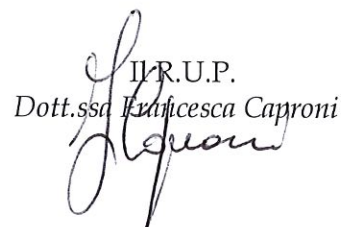 Il R.U.P.
Dott.ssa Francesca Caproni